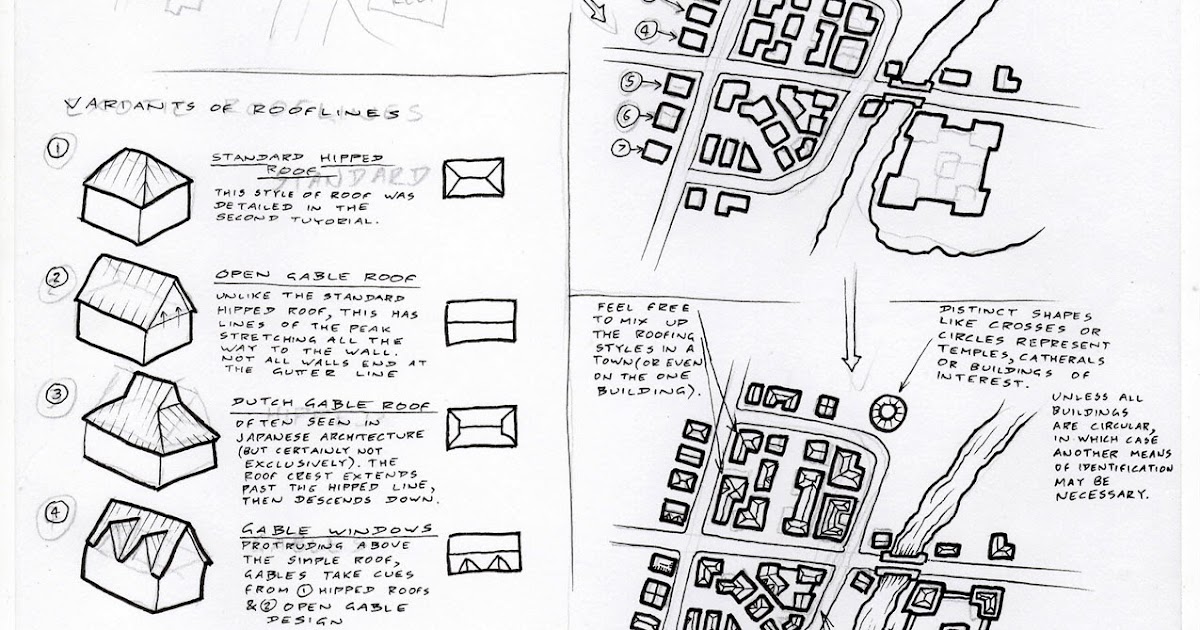 VARIANTS OF ROOFLINES
1
STANDARD HIPPED
ROOF
THIS STYLE OF ROOF WAS
DETAILED IN THE
SECOND TUTORIAL.
2
OPEN GABLE ROOF
UNLIKE THE STANDARD
HIPPED ROOF, THIS HAS
LINES OF THE PEAK
STRETCHING ALL THE
WAY TO THE WALL.
NOT ALL WALLS END AT
THE GUTTER LINE
3
DUTCH GABLE ROOF
OFTEN SEEN IN
JAPANESE ARCHITECTURE
(BUT CERTAINLY NOT
EXCLUSIVELY). THE
ROOF CREST EXTENDS
PAST THE HIPPED LINE,
THEN DESCENDS DOWN.
4
GABLE WINDOWS
PROTRUDING ABOVE
THE SIMPLE ROOF,
GABLES TAKE CUES
FROM 1 HIPPED ROOFS
& 2 OPEN GABLE
DESIGN
4
5
6
7
FEEL FREE
TO MIX UP
THE ROOFING
STYLES IN A
TOWN (OR EVEN
ON THE ONE
BUILDING).
DISTINCT SHAPES
LIKE CROSSES OR
CIRCLES REPRESENT
TEMPLES, CATHERALS
OR BUILDINGS OF
INTEREST.
UNLESS ALL
BUILDINGS
ARE CIRCULAR,
IN WHICH CASE
ANOTHER MEANS
OF IDENTIFICATION
MAY BE
NECESSARY.